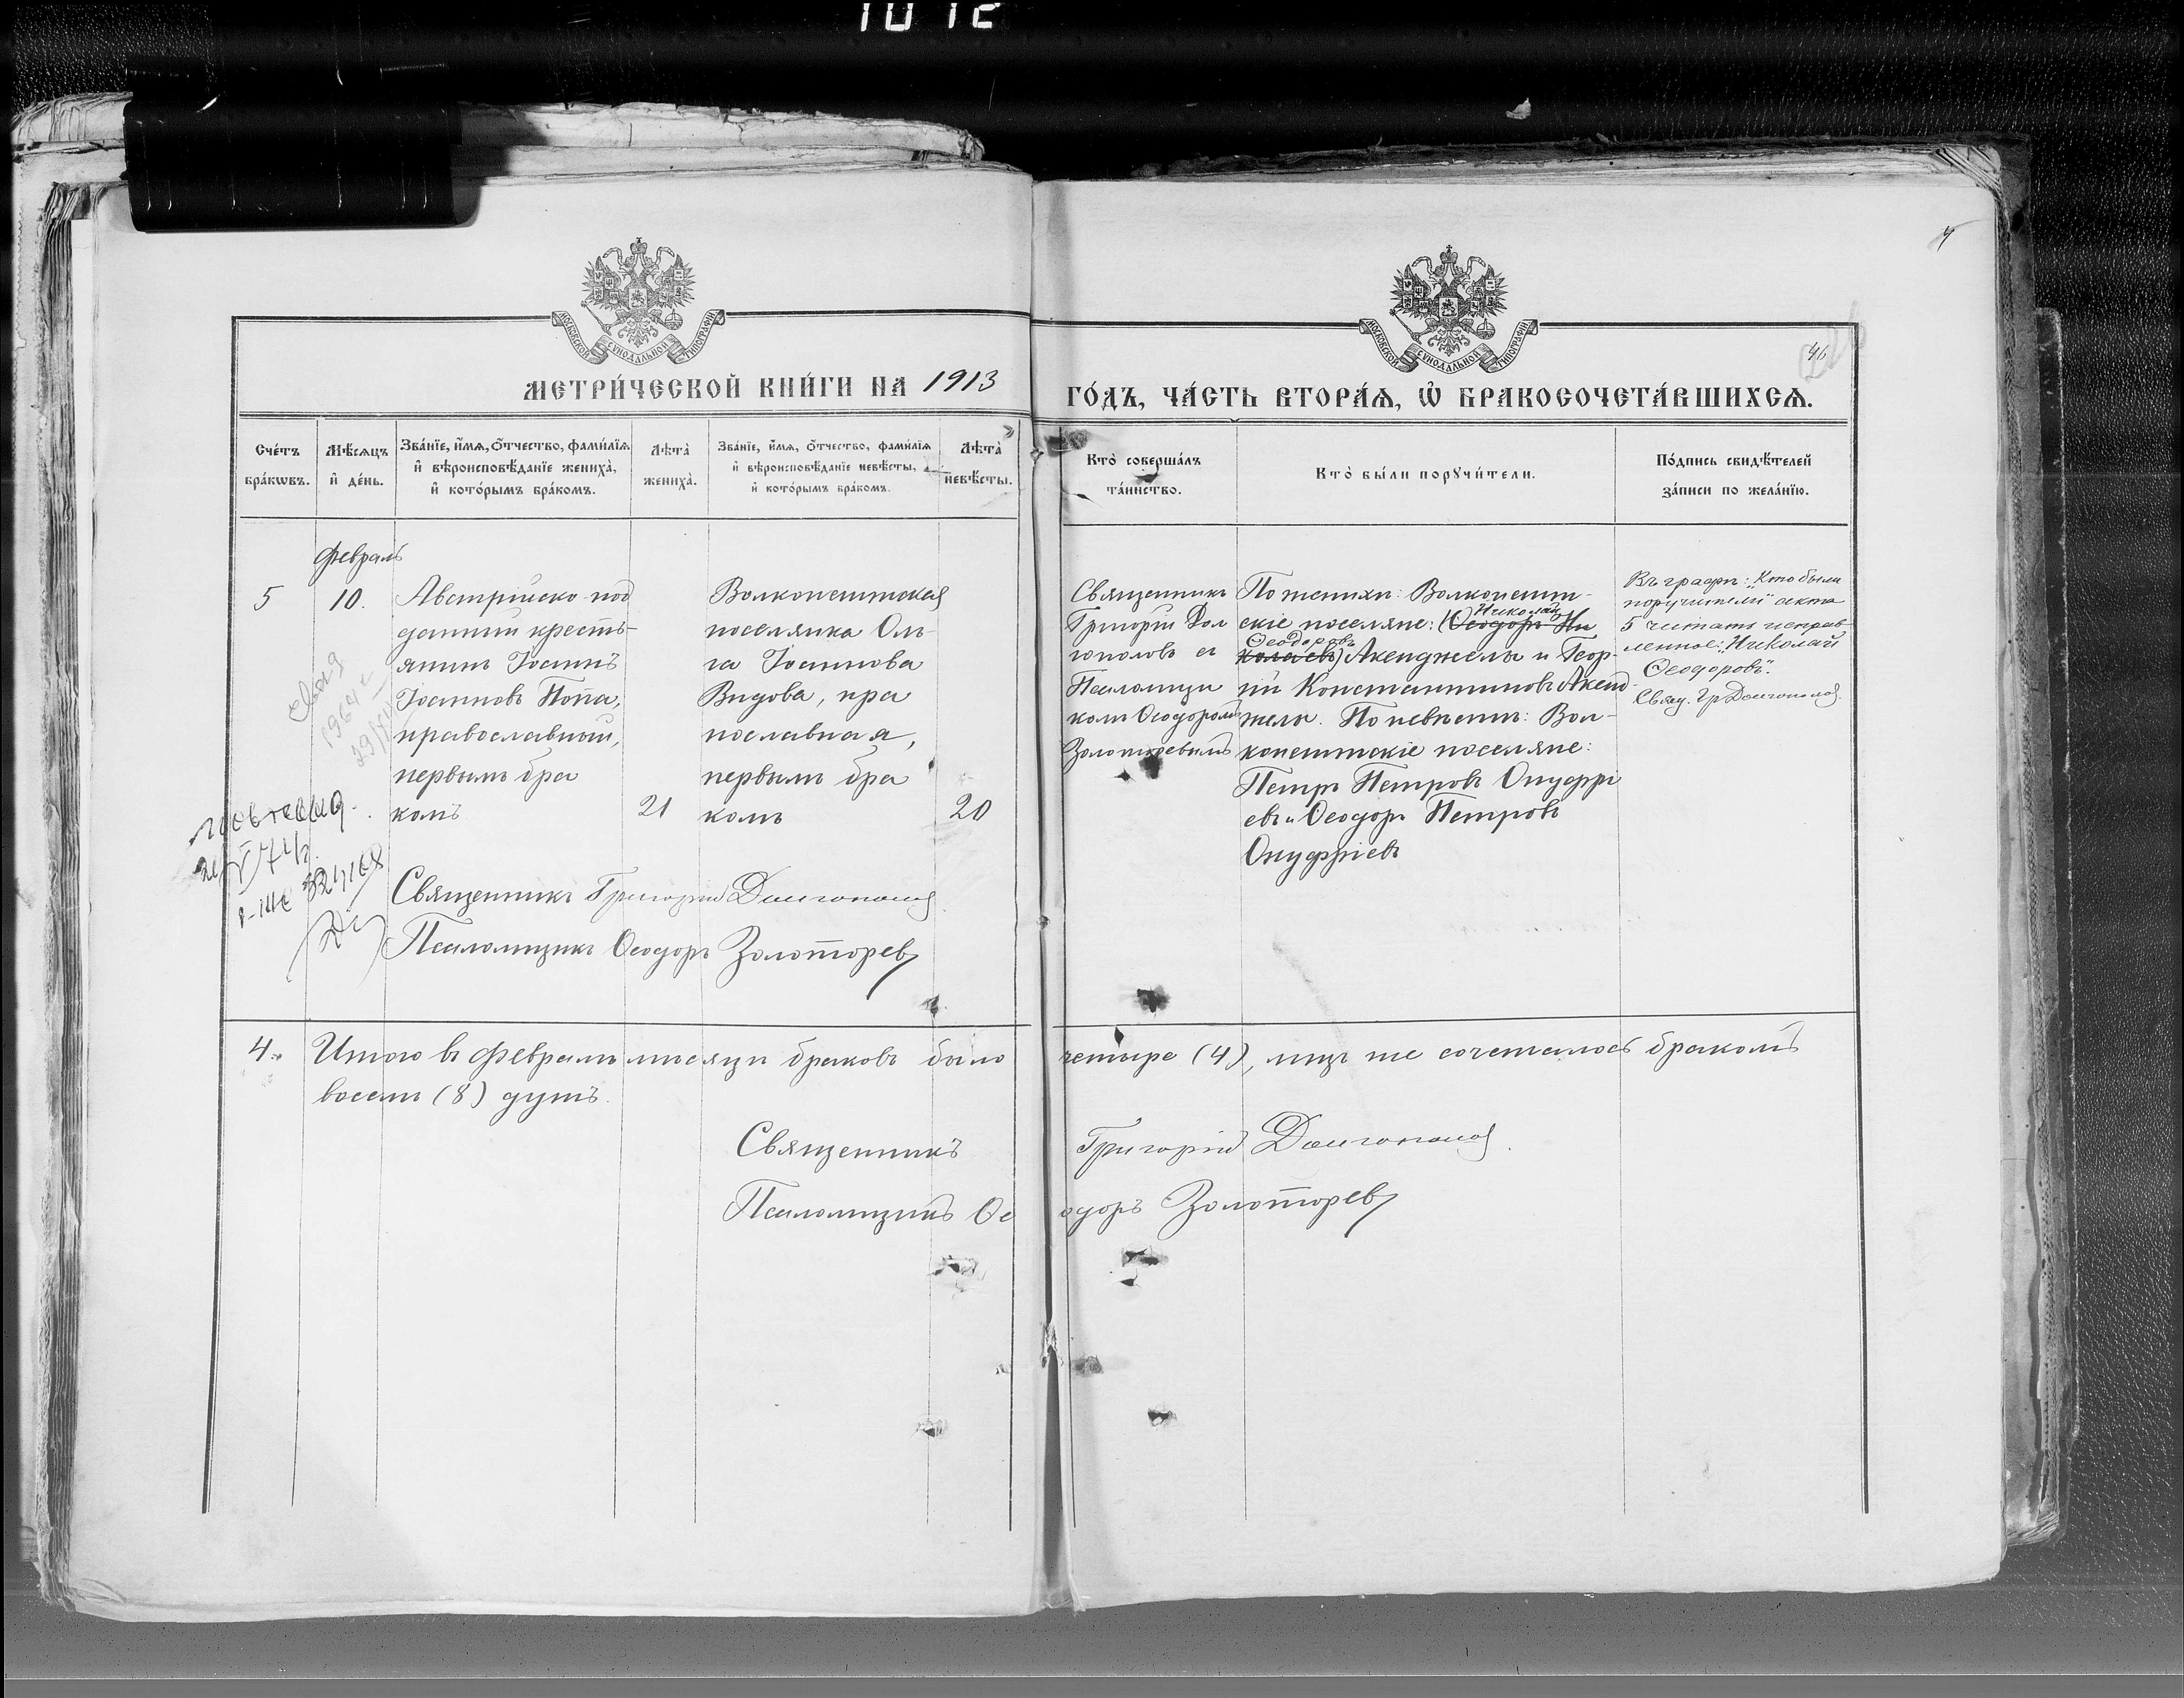 1012
4
46
МОСКОВСКОЙ СѴНОДАЛЬНОЙ ТИПОГРАФІИ
МОСКОВСКОЙ СѴНОДАЛЬНОЙ ТИПОГРАФІИ
МЕТРИ́ЧЕСКОЙ КНИ́ГИ НА 1913
ГО́ДЪ, ЧА́СТЬ ВТОРА́Ѧ, Ѡ҆ БРАКОСОЧЕТА́ВШИХСѦ.
Сче́тъ
бра́кѡвъ.
Мѣ́сяцъ
и҆ де́нь.
Зва́нїе, и҆́мѧ, о҆́тчество, фами́лїѧ
и҆ вѣроисповѣ́данїе жениха̀,
и҆ кото́рымъ бра́комъ.
Лѣта̀
жениха̀.
Зва́нїе, и҆́мѧ, о҆́тчество, фами́лїѧ
и҆ вѣроисповѣ́данїе невѣ́сты,
и҆ кото́рымъ бра́комъ.
Лѣта̀
невѣ́сты.
Кто̀ соверша́лъ
та́инство.
Кто̀ бы́ли порꙋчи́тели.
По́дпись свидѣ́телей
за́писи по жела́нїю.
Февраль
5
10.
Австрійско-под
данный кресть-
янинъ Іоаннъ
Іоанновъ Попа,
православный,
первымъ бра
комъ
21
Волконештская
поселянка Оль-
га Іоаннова
Видова, пра
вославная,
первымъ бра
комъ
20
Священникъ
Григорій Дол
гополовъ съ
Псаломщи
комъ Ѳеодоромъ
Золотаревымъ
По женихѣ: Волконешт-
Николай
скіе поселяне: (Ѳеодоръ Ни
Ѳеодоровъ
колаевъ) Акенджелы и Геор-
гій Константиновъ Акенд-
желы. По невѣстѣ: Вол-
конештскіе поселяне:
Петръ Петровъ Онуфрі
евъ и Ѳеодоръ Петровъ
Онуфріевъ
Въ графѣ: „Кто были
поручители" акта
5 читать исправ
ленное: „Николай
Ѳеодоровъ".
Свящ. Гр Долгополов
Священникъ Григорій Долгополов
Псаломщикъ Ѳеодоръ Золоторев
4.
Итого въ Февралѣ мѣсяцѣ браковъ было четыре (4), лицъ же сочеталось бракомъ
восемь (8) душъ.
Священникъ Григорій Долгополов
Псаломщикъ Ѳеодоръ Золоторев